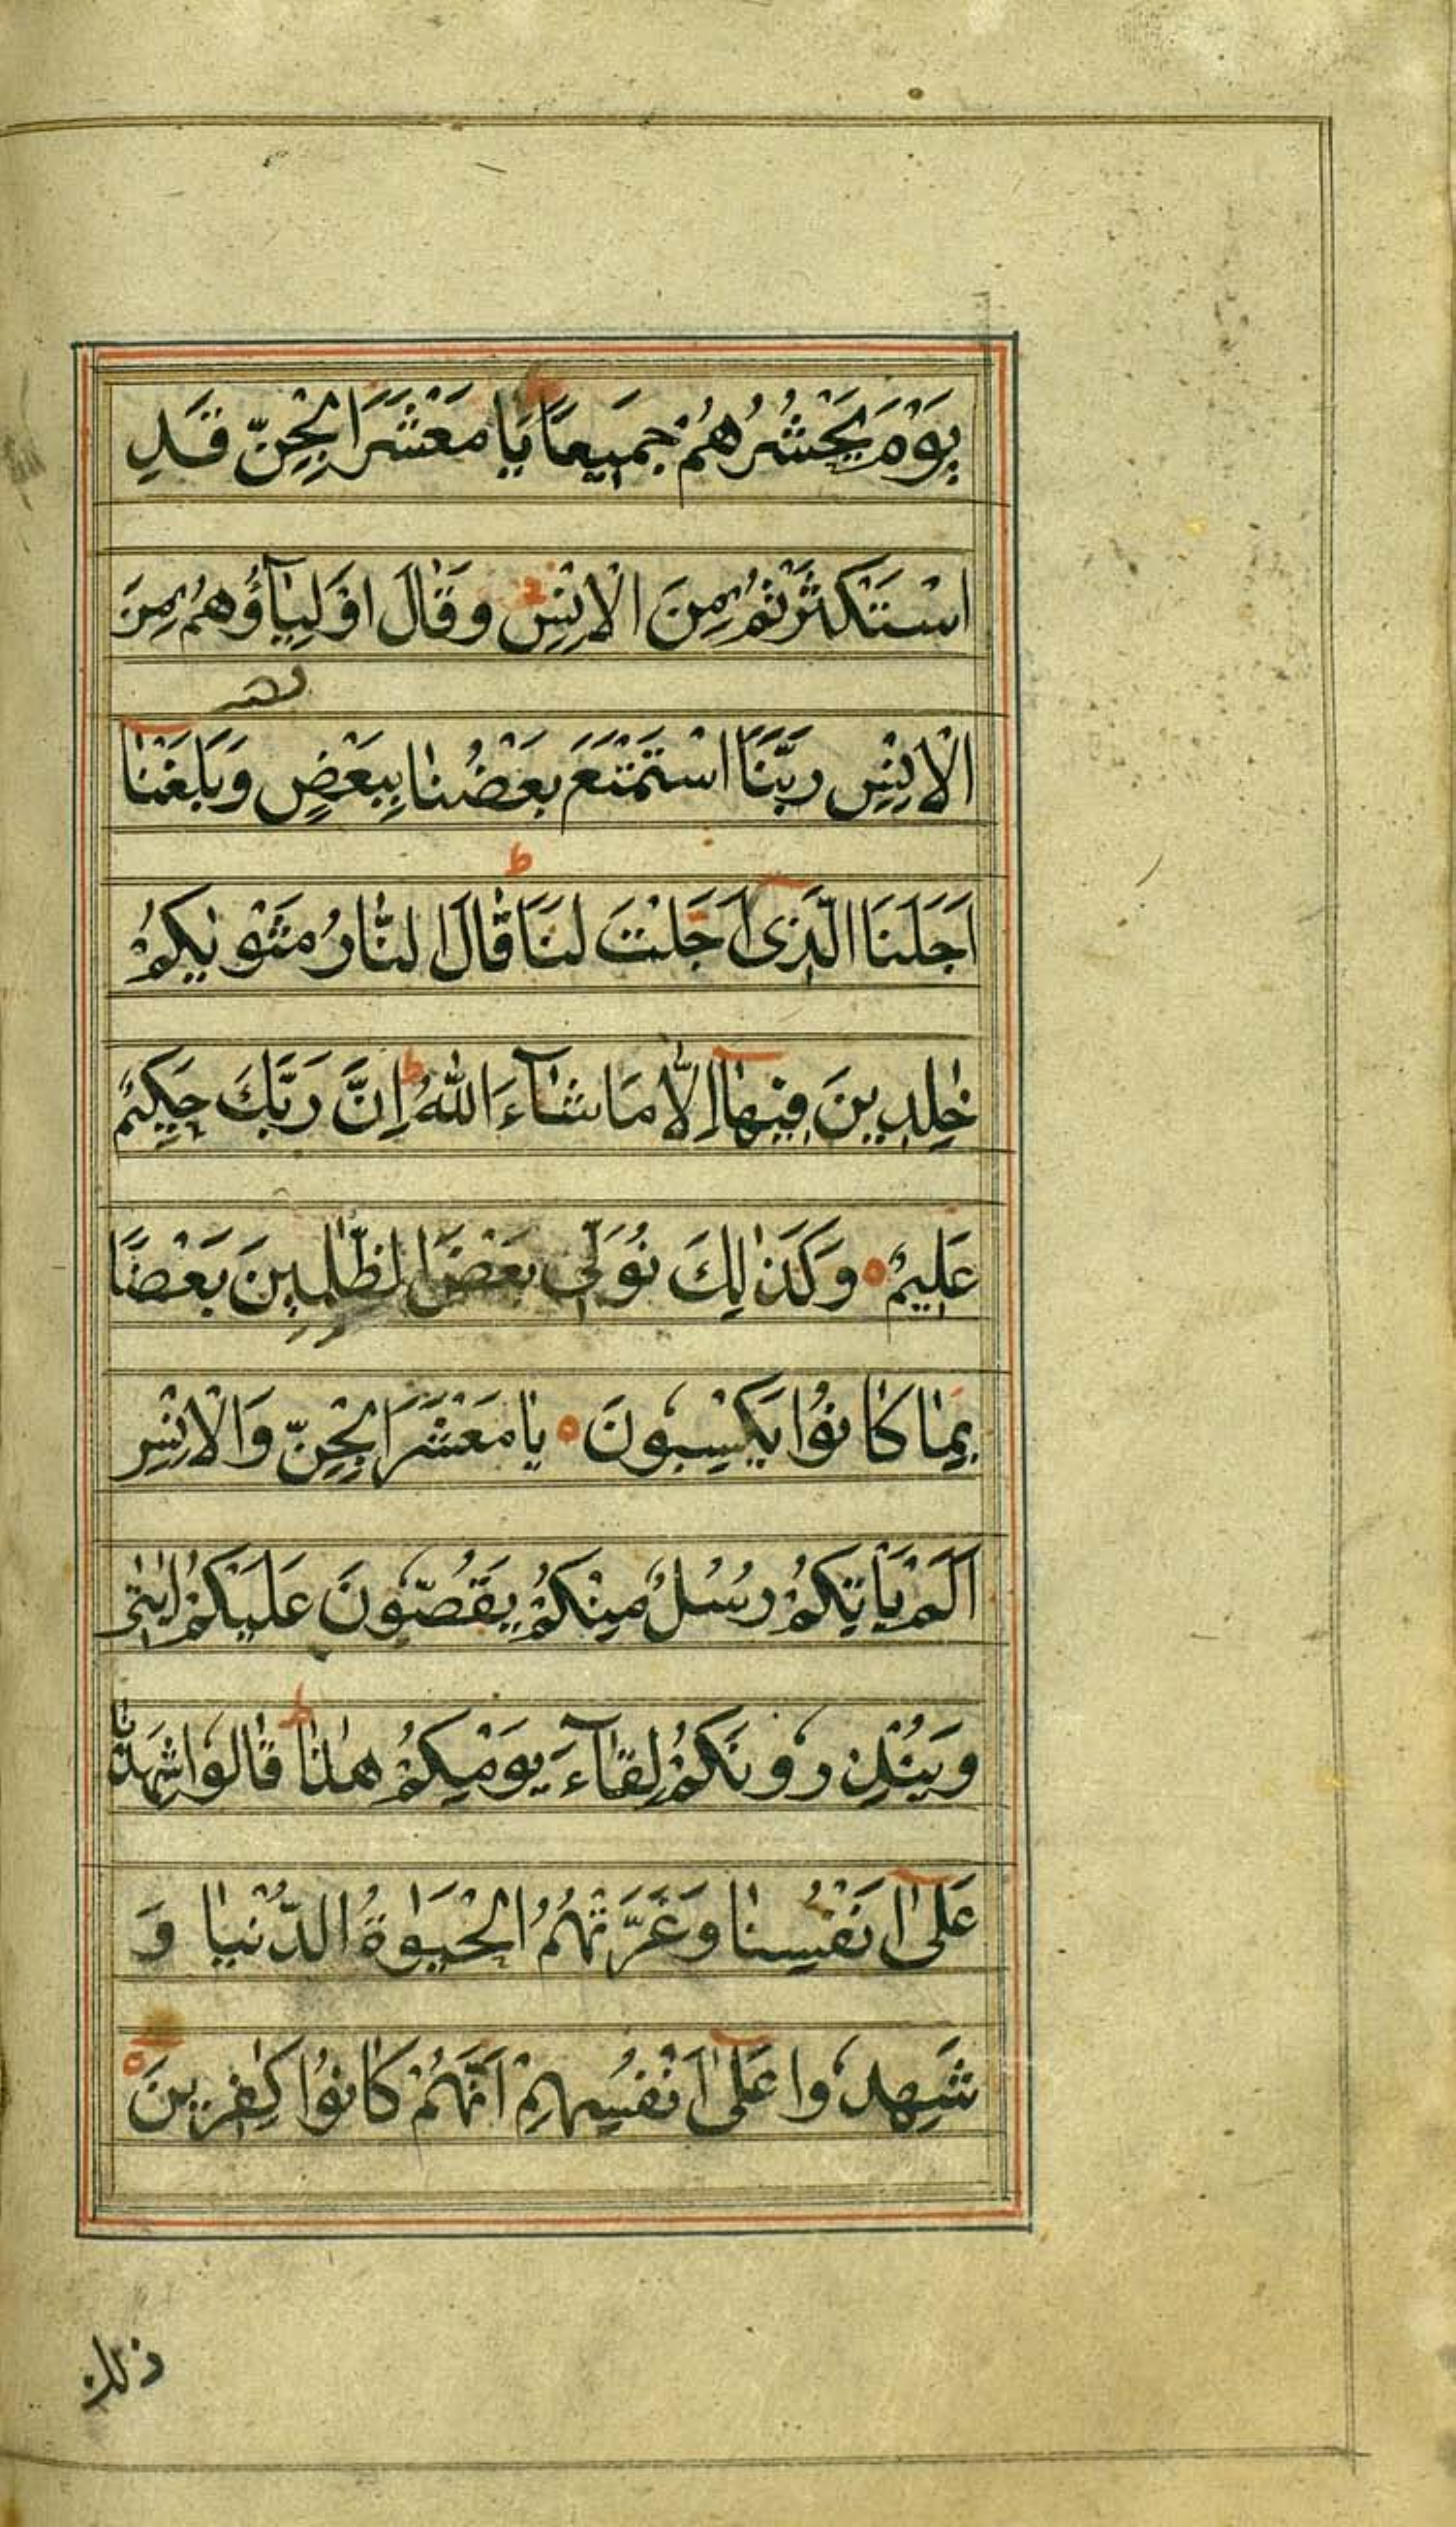 يَوْمَ يَحْشُرُهُمْ جَمِيعًا يَا مَعْشَرَ الْجِنِّ قَدِ
اسْتَكْثَرْتُمْ مِنَ الْاِنْسِ وَقَالَ اَوْلِيَآؤُهُمْ مِنَ
الْاِنْسِ رَبَّنَا اسْتَمْتَعَ بَعْضُنَا بِبَعْضٍ وَبَلَغْنَآ
اَجَلَنَا الَّذِىٓ اَجَّلْتَ لَنَا ط قَالَ النَّارُ مَثْوٰىكُمْ
خٰلِدِينَ فِيهَآ اِلَّا مَا شَآءَ اللّٰهُ ط اِنَّ رَبَّكَ حَكِيمٌ
عَلِيمٌ ه وَكَذٰلِكَ نُوَلِّى بَعْضَ الظّٰلِمِينَ بَعْضًا
بِمَا كَانُوا يَكْسِبُونَ ه يَا مَعْشَرَ الْجِنِّ وَالْاِنْسِ
اَلَمْ يَاْتِكُمْ رُسُلٌ مِنْكُمْ يَقُصُّونَ عَلَيْكُمْ اٰيٰتِى
وَيُنْذِرُونَكُمْ لِقَآءَ يَوْمِكُمْ هٰذَا ط قَالُوا شَهِدْنَا
عَلٰٓى اَنْفُسِنَا وَغَرَّتْهُمُ الْحَيٰوةُ الدُّنْيَا وَ
شَهِدُوا عَلٰٓى اَنْفُسِهِمْ اَنَّهُمْ كَانُوا كٰفِرِينَ ه
ذلك